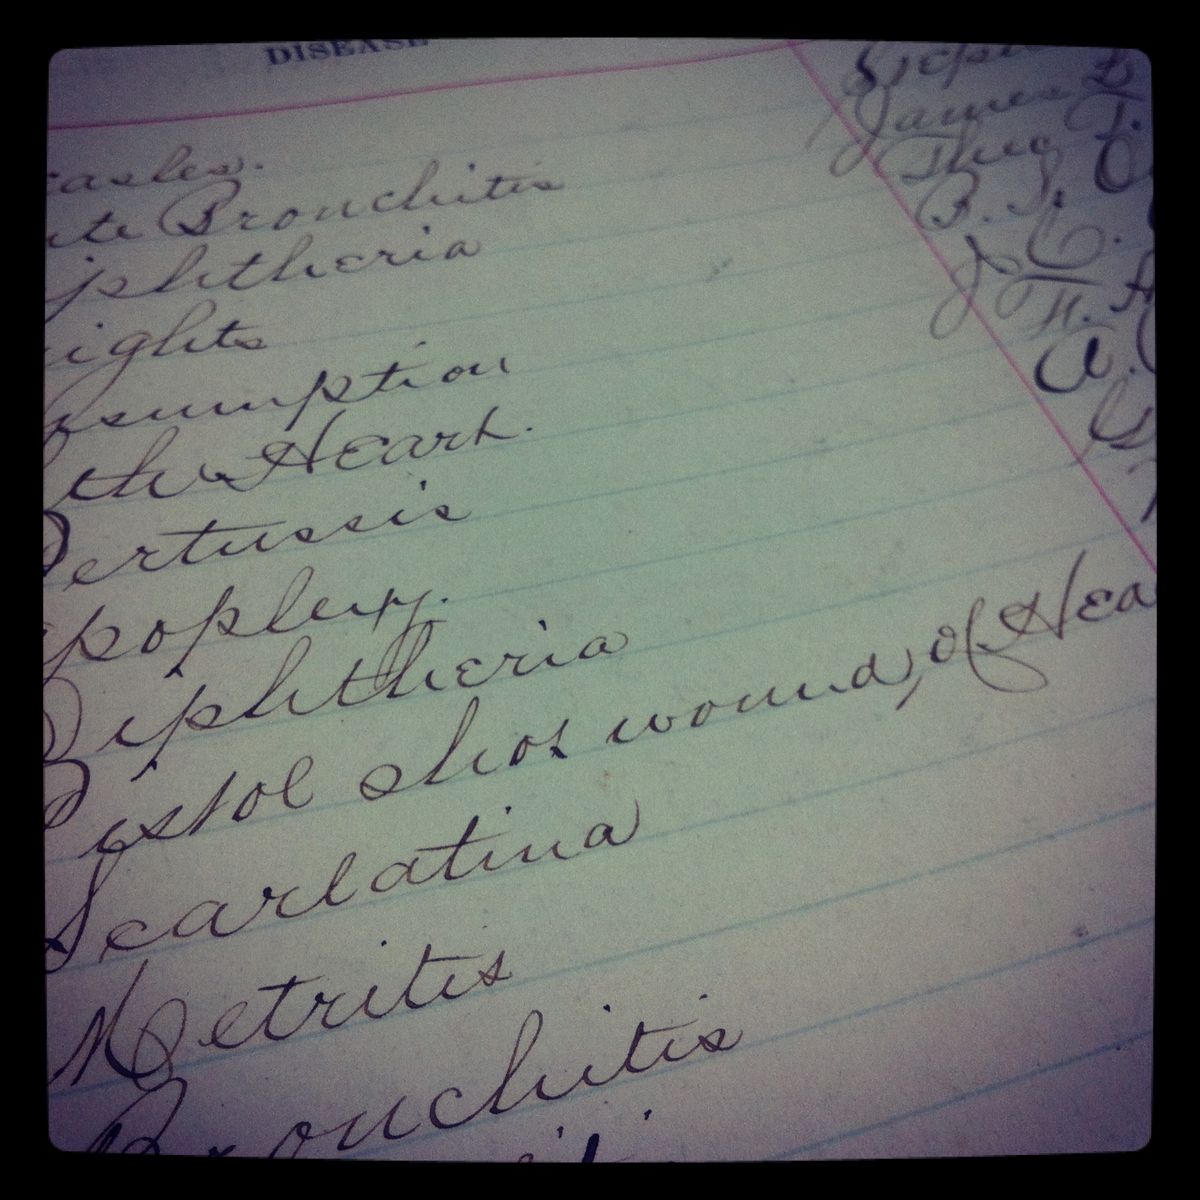 DISEASE
easles.
ute Bronchitis
iphtheria
ights
nsumption
the Heart.
Pertussis
poplexy.
Diphtheria
Pistol shot wound, of Hea
Scarlatina
Metritis
Bronchitis
James
Theo F.